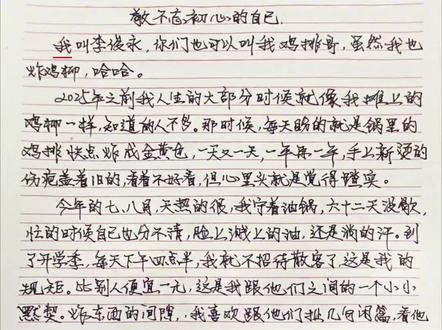 敬不忘初心的自己.
我叫李俊永，你们也可以叫我鸡排哥，虽然我也
炸鸡柳，哈哈。
2025年之前我人生的大部分时候就像我摊上的
鸡柳一样，知道的人不多。那时候，每天盼的就是锅里的
鸡排快点炸成金黄色，一天又一天，一年又一年，手上新烫的
伤疤盖着旧的，看着不好看，但心里头就是觉得踏实。
今年的七、八月，天热的很，我守着油锅，六十二天没歇，
忙的时候自己也分不清，脸上溅上的油，还是淌的汗。到
了开学季，每天下午四点半，我就不招待散客了，这是我的
规矩。比别人便宜一元，这是我跟他们之间的一个小小
默契。炸东西的间隙，我喜欢跟他们扯几句闲篇，看他